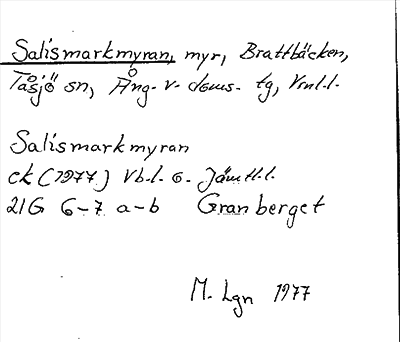 Salismarkmyran, myr, Brattbäcken,
Tåsjö sn, Ång. v. doms. tg, Vnl.l.
Salismarkmyran
ek (1977) Vb.l. o. Jämtl.l.
21G 6-7 a-b Granberget
M. Lgn 1977